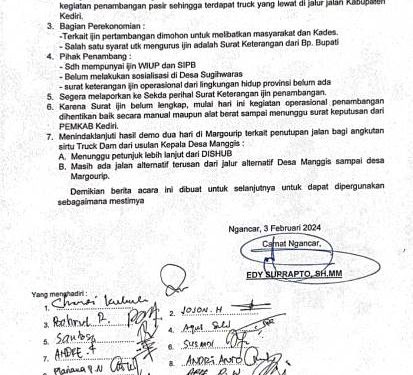 kegiatan penambangan pasir sehingga terdapat truck yang lewat di jalur jalan Kabupaten
Kediri.
3. Bagian Perekonomian :
-Terkait ijin pertambangan dimohon untuk melibatkan masyarakat dan Kades.
- Salah satu syarat utk mengurus ijin adalah Surat Keterangan dari Bp. Bupati
4. Pihak Penambang :
- Sdh mempunyai ijin WIUP dan SIPB
- Belum melakukan sosialisasi di Desa Sugihwaras
- surat keterangan ijin operasional dari lingkungan hidup provinsi belum ada
5. Segera melaporkan ke Sekda perihal Surat Keterangan ijin penambangan.
6. Karena Surat ijin belum lengkap, mulai hari ini kegiatan operasional penambangan
dihentikan baik secara manual maupun alat berat sampai menunggu surat keputusan dari
PEMKAB Kediri.
7. Menindaklanjuti hasil demo dua hari di Margourip terkait penutupan jalan bagi angkutan
sirtu Truck Dam dari usulan Kepala Desa Manggis :
A. Menunggu petunjuk lebih lanjut dari DISHUB
B. Masih ada jalan alternatif terusan dari jalur alternatif Desa Manggis sampai desa
Margourip.
Demikian berita acara ini dibuat untuk selanjutnya untuk dapat dipergunakan
sebagaimana mestinya
Ngancar, 3 Februari 2024
Camat Ngancar,
EDY SUPRAPTO, SH.MM
Yang menghadiri :
1.
2. JOJON. H
3. R.
4. Agus
5.
6.
7.
8. ANDRI ANTO